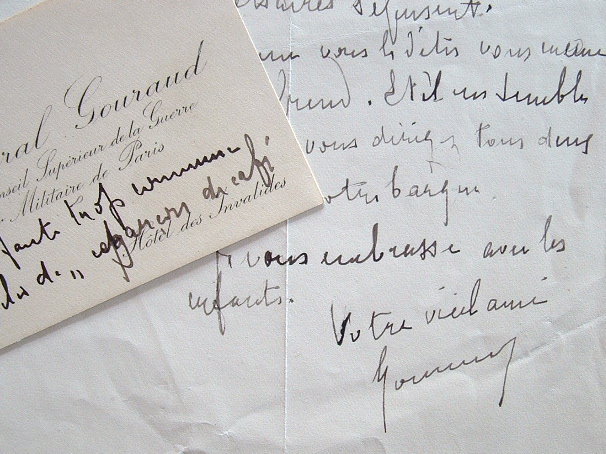 ral Gouraud
nseil Supérieur de la Guerre
Militaire de Paris
Hôtel des Invalides
faute trop
garçons de café
vous le dites vous même
. Et il me semble
vous dirigez tous deux
votre barque.
Je vous embrasse avec les
enfants.
Votre vieil ami
Gouraud